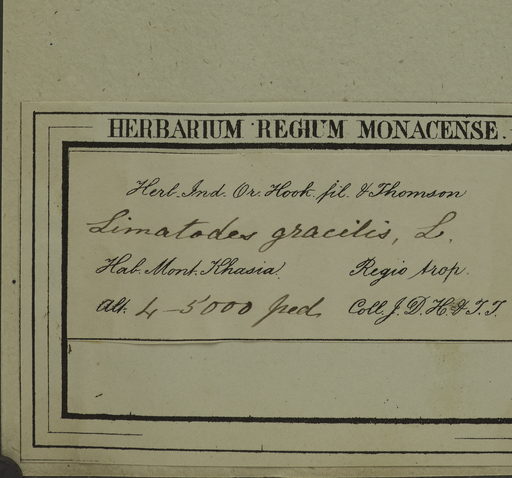 HERBARIUM REGIUM MONACENSE.
Herb. Ind. Or. Hook. fil. & Thomson
Limatodes gracilis, L.
Hab. Mont. Khasia. Regio trop.
Alt. 4–5000 ped. Coll. J. D. H. & T. T.